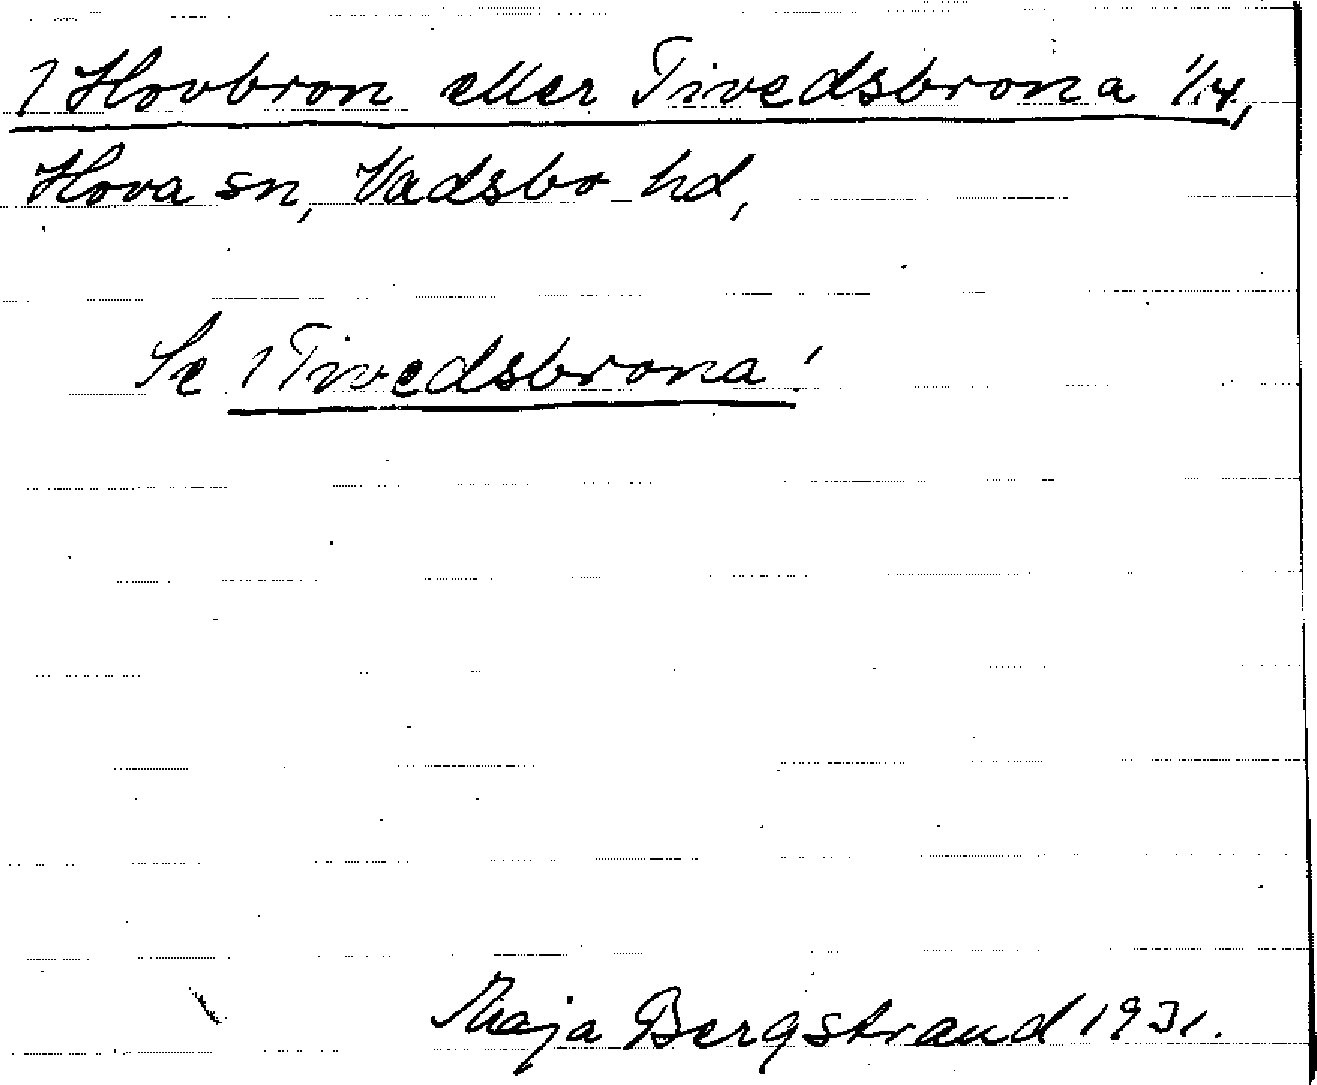 1 Hovbron eller Tivedsbrona 1/4,
Hova sn, Vadsbo hd,
Se 1 Tivedsbrona!
Maja Bergstrand 1931.